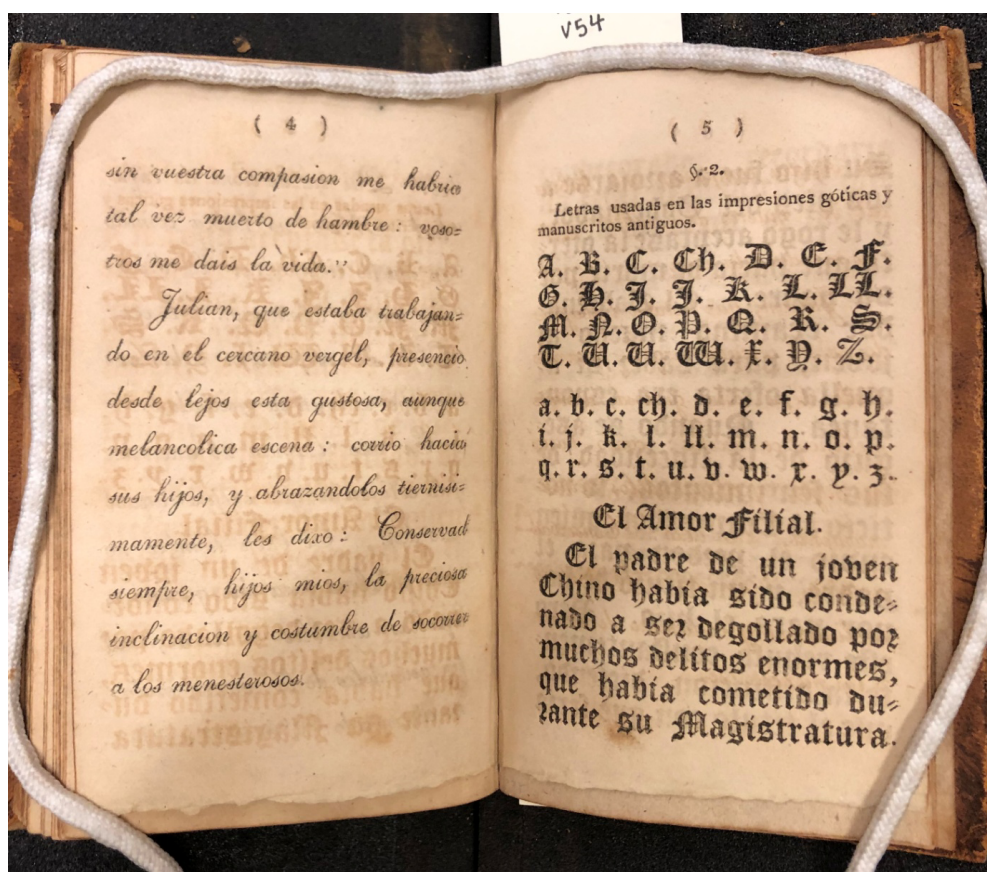 v54
( 4 )
sin vuestra compasion me habria
tal vez muerto de hambre: voso=
tros me dais la vida.”
Julian, que estaba trabajan=
do en el cercano vergel, presenció
desde lejos esta gustosa, aunque
melancolica escena: corrió hacia
sus hijos, y abrazandolos tiernisi=
mamente, les dixo: Conservad
siempre, hijos mios, la preciosa
inclinacion y costumbre de socorrer
a los menesterosos.
( 5 )
§. 2.
Letras usadas en las impresiones góticas y
manuscritos antiguos.
A. B. C. Ch. D. E. F.
G. H. I. J. K. L. LL.
M. N. O. P. Q. R. S.
T. U. U. W. X. Y. Z.
a. b. c. ch. d. e. f. g. h.
i. j. k. l. ll. m. n. o. p.
q. r. s. t. u. v. w. x. y. z.
El Amor Filial.
El padre de un joven
Chino habia sido conde=
nado a ser degollado por
muchos delitos enormes,
que habia cometido du=
rante su Magistratura.